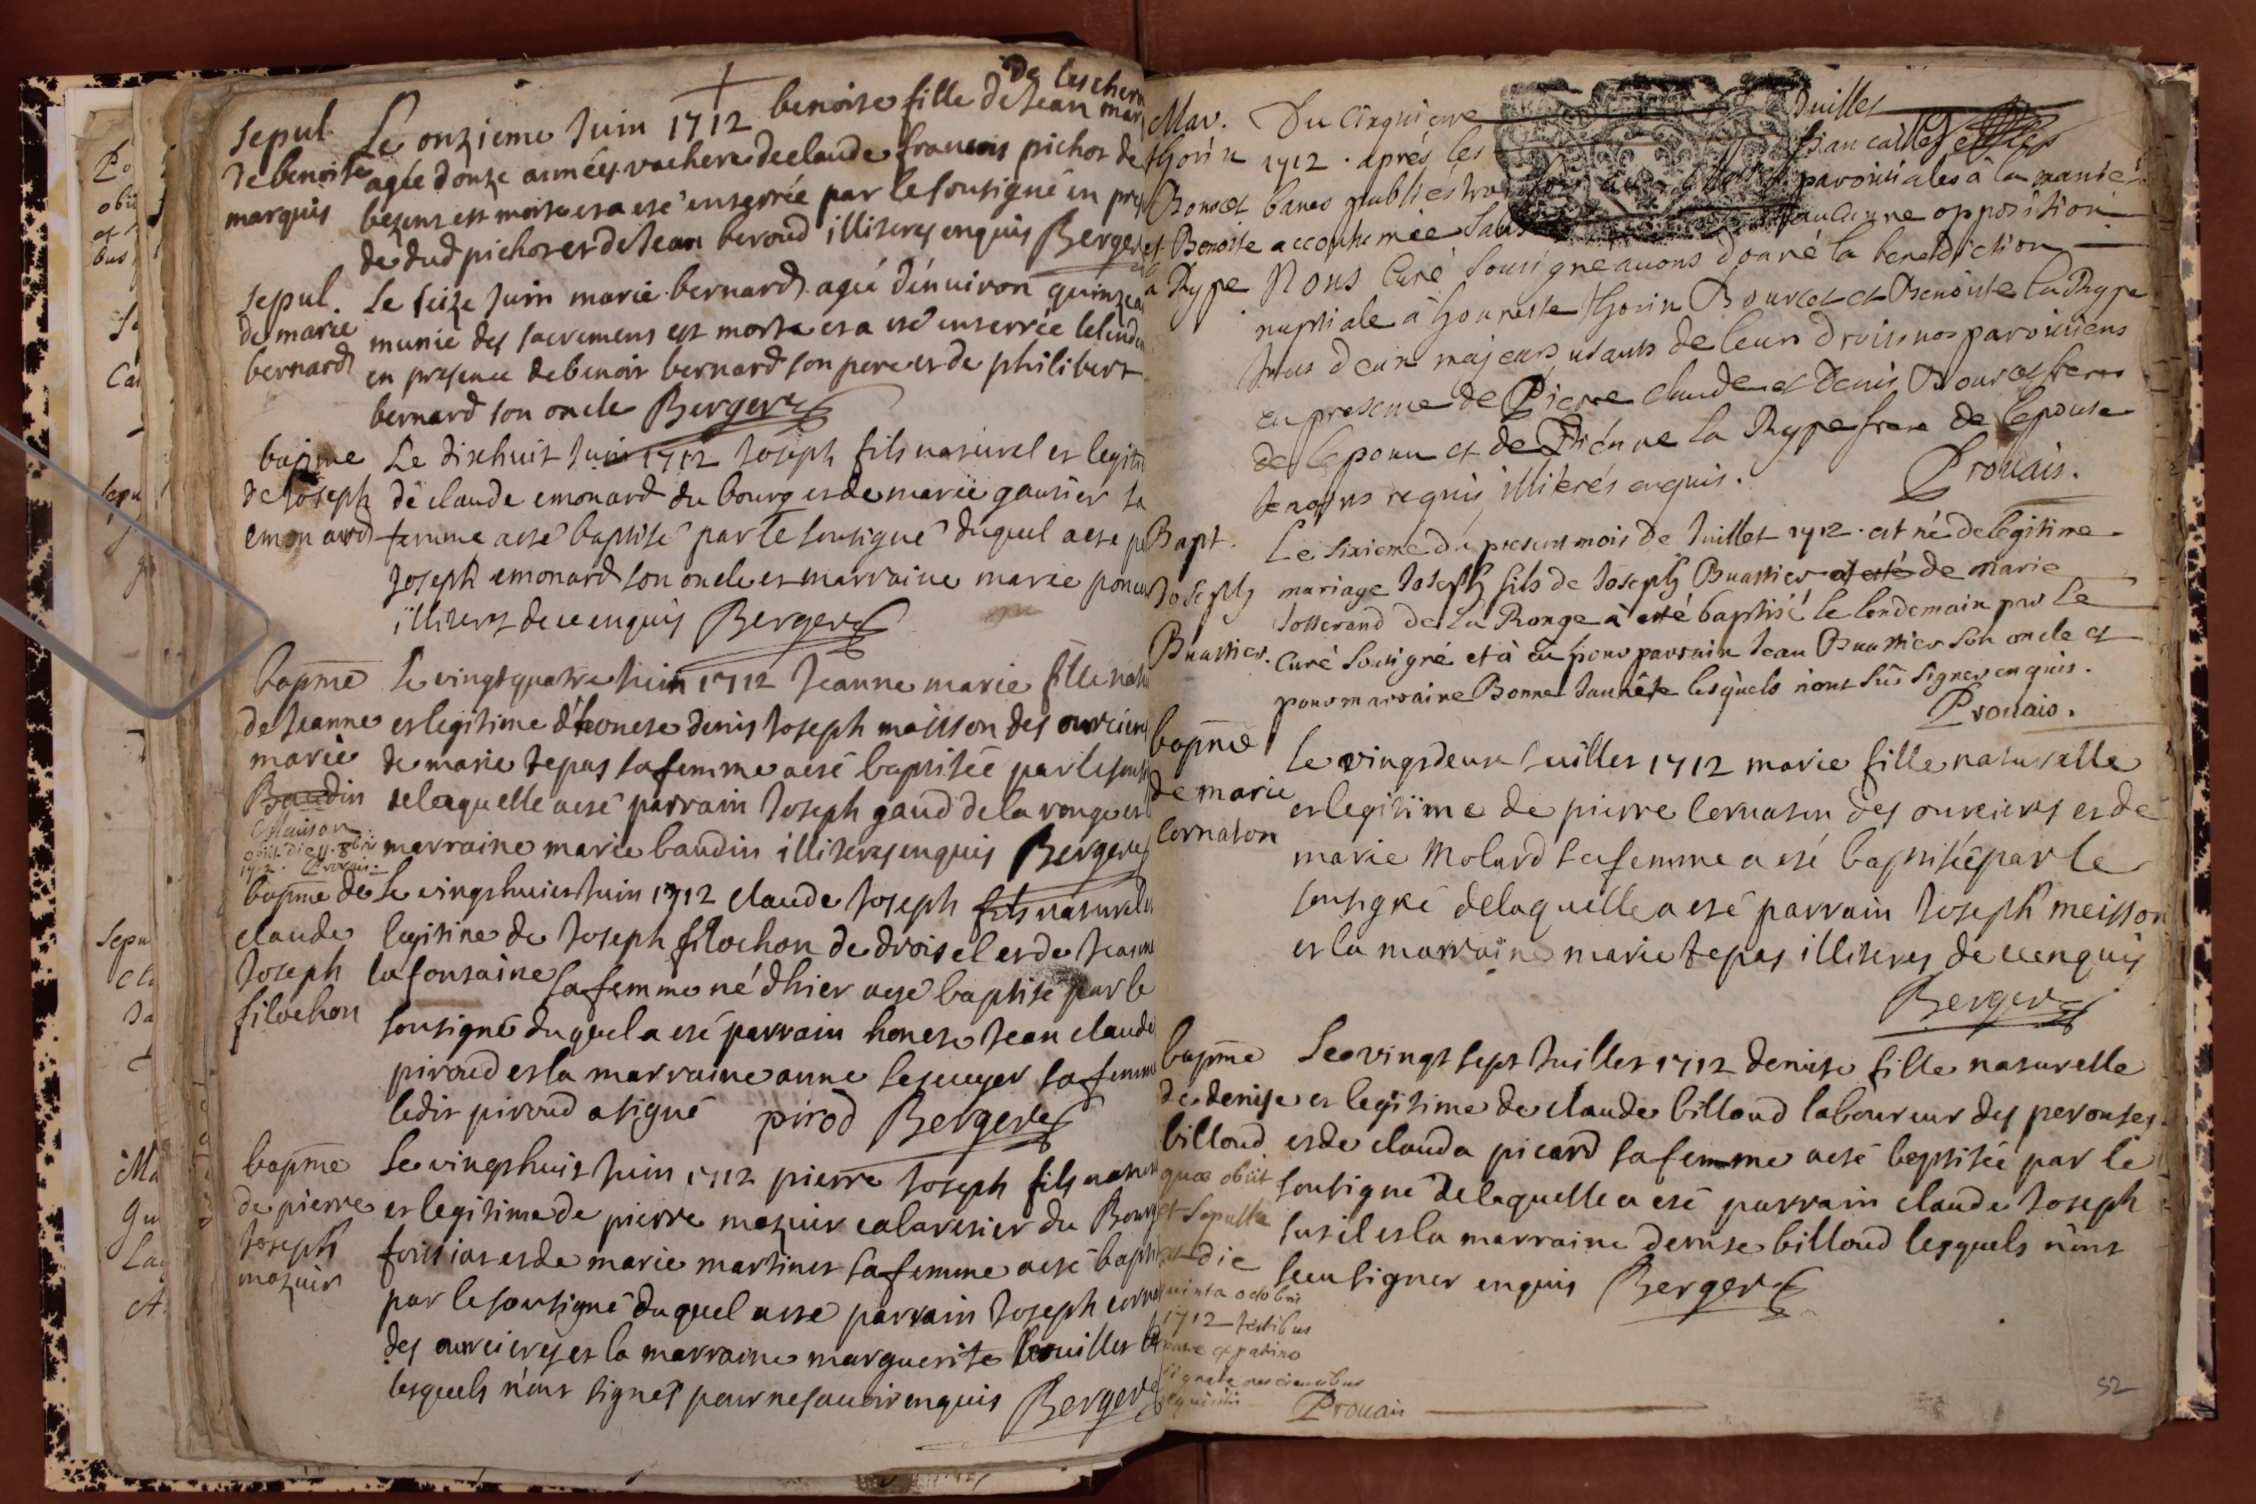 de leschere
sepul. Le onzieme Juin 1712 benoite fille de Jean mar
de benoite agée donze années vachere de claude francois pichot de
marquis bezens est morte et a esté enterrée par le sousigné en pre
de dud pichot et de Jean beroud illiteres enquis Berger
sepul. Le seize Juin marie bernard agée denuiron quinze a
de marie munie des sacremens est morte et a esté enterrée le lende
bernard en presence de benoit bernard son pere et de philibert
bernard son oncle Berger
bapme Le dixhuit Juin 1712 Joseph fils naturel et legiti
de Joseph de claude emonard du bourg et de marie gautier sa
emonard femme a esté baptisé par le sousigné duquel a esté p
Joseph emonard son oncle et marraine marie ponce
illiteres de ce enquis Berger
bapme Le vingt quatre Juin 1712 Jeanne marie fille natu
de Jeanne et legitime d'honeste denis Joseph maisson des ourcieres
marie de marie tepas sa femme a esté baptisée par le sous
Baudin de laquelle a esté parrain Joseph gaud de la ronge et
Maison
obiit die 11. 8bris
1712. Prouais. marraine marie baudin illiteres enquis Berger
bapme de Le vingt huict Juin 1712 claude Joseph fils naturel et
claude legitime de Joseph filochon de droisel et de Jeanne
Joseph lafontaine sa femme né d'hier a esté baptisé par le
filochon sousigné duquel a esté parrain honeste Jean claude
piroud et la marraine anne lescuyer sa femme
ledit piroud a signé pirod Berger
bapme Le vingt huit Juin 1712 pierre Joseph fils nature
de pierre et legitime de pierre mazuir cabaretier du Bourg
Joseph foissiat et de marie martinet sa femme a esté bapti
mazuir
par le sousigné duquel a esté parrain Joseph corne
des ourcieres et la marraine marguerite bouillet
lesquels n'ont signés pour ne sauoir enquis Berger
Mar. Du Cinquieme Juillet
thorin 1712. aprés les fiancailles
Bourcet bancs publiés paroissiales à la maniére
et Benoite accoutumée sans aucunne opposition
la Rype Nous Curé sousigné auons donné la benediction
nuptiale à honneste thorin Bourcet et Benoiste la Rype
tous deux majeurs usants de leurs droits nos paroissiens
en presence de Pierre claude et Denis Bourcet freres
de lepoux et de Etiénne la Rype frere de lepouse
temoins requis illitérés enquis. Prouais.
Bapt. Le sixieme du present mois de Juillet 1712. est né de legitime
Joseph mariage Joseph fils de Joseph Buattier et esté de marie
Josserand de la Ronge à esté baptisé le lendemain par le
Buattier. Curé sousigné et à eu pour parrain Jean Buattier son oncle et
pour marraine Bonne Jannéte lesquels n'ont sûs signer enquis.
Prouais.
bapme Le vingt deux Juillet 1712 marie fille naturelle
de marie et legitime de pierre cornaton des ourcieres et de
cornaton marie Molard sa femme a esté baptisée par le
sousigné de laquelle a esté parrain Joseph meisson
et la marraine marie tepas illiteres de ce enquis
Berger
bapme Le vingt sept Juillet 1712 denise fille naturelle
de denise et legitime de claude billoud laboureur des perouses
billoud et de clauda picard sa femme a esté baptisée par le
quæ obiit sousigné de laquelle a esté parrain claude Joseph
et sepulta sutil et la marraine denise billoud lesquels n'ont
est die sceu signer enquis Berger
quinta octobris
1712 testibus
patre et patrino
signare nescientibus
requisitis Prouais
52